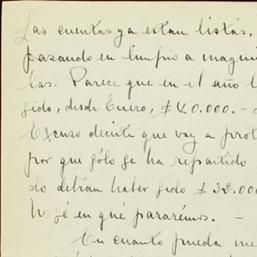 Las cuentas ya estan listas,
pasando en limpio a maqui
las. Parece que en el año
sido, desde Enero, $ 40.000.-
Excuso decirte que voy a prot
por que sólo se ha repartido
do debían haber sido $ 32.000
No sé en qué pararémos. -
En cuanto pueda me